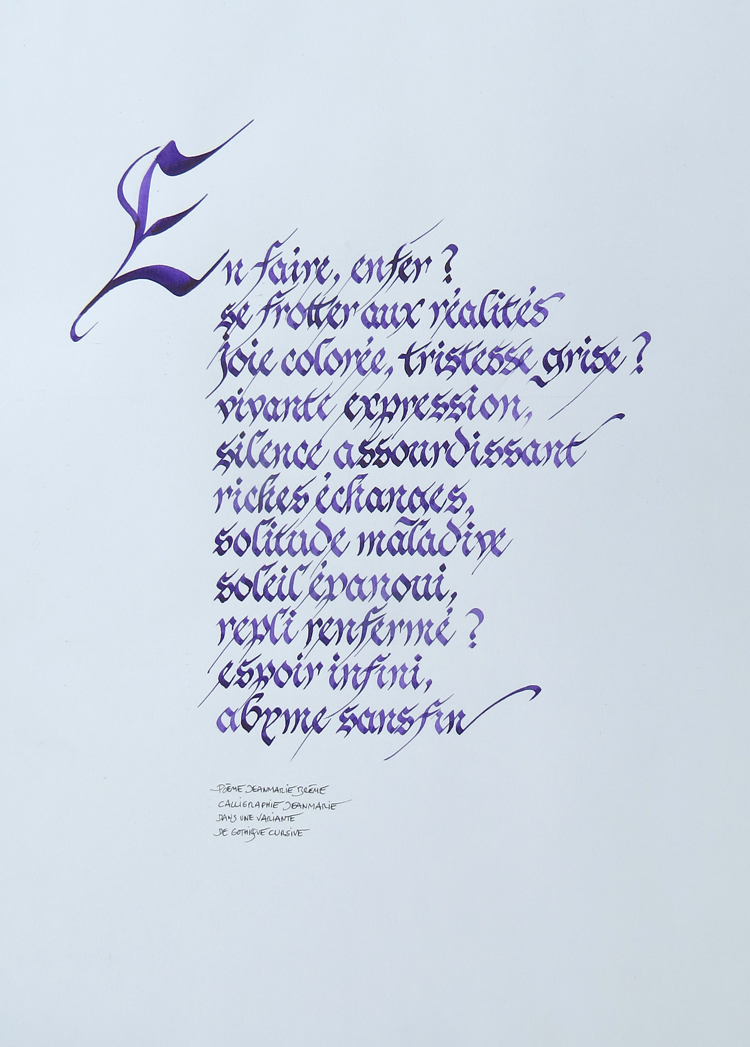 En faire, enfer ?
se frotter aux réalités
joie colorée, tristesse grise ?
vivante expression,
silence assourdissant
riches échanges,
solitude maladive
soleil évanoui,
repli renfermé ?
espoir infini,
abyme sans fin
POÈME JEANMARIE BRÊME
CALLIGRAPHIE JEANMARIE
DANS UNE VARIANTE
DE GOTHIQUE CURSIVE